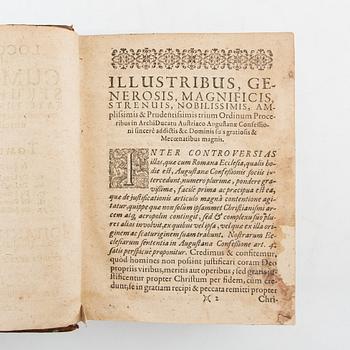 LOCO
CUM
ILLUSTRIBUS, GE-
NEROSIS, MAGNIFICIS,
STRENUIS, NOBILISSIMIS, AM-
plissimis & Prudentissimis trium Ordinum Proce-
ribus in ArchiDucatu Austriaco Augustanæ Confessio-
ni sincerè addictis &c Dominis suis gratiosis &
Mecœnatibus magnis.
INTER CONTROVERSIAS
illas, quæ cum Romana Ecclesia, qualis ho-
die est, Augustanæ Confessionis sociis inter-
cedunt numero plurimæ, pondere gra-
vissimæ, facilè prima ac præcipua est ea,
quæ de justificationis articulo magnâ contentione agi-
tatur, quippe quæ non solùm ipsummet Christianismi ar-
cem atq; acropolin contingit, sed & complexu suo plu-
res alias involvit, ex quibus vel ipsa, vel quæ ex illa origi-
nem ac scaturiginem suam trahunt. Nostrarum Ec-
clesiarum sententia in Augustanæ Confessione art. 4.
satis perspicuè proponitur. Credimus & confitemur,
quòd homines non possint justificari coram Deo
propriis viribus, meritis aut operibus; sed gratis ju-
stificentur propter Christum per fidem, cum cre-
dunt, se in gratiam recipi & peccata remitti propter
)( 2 Chri-